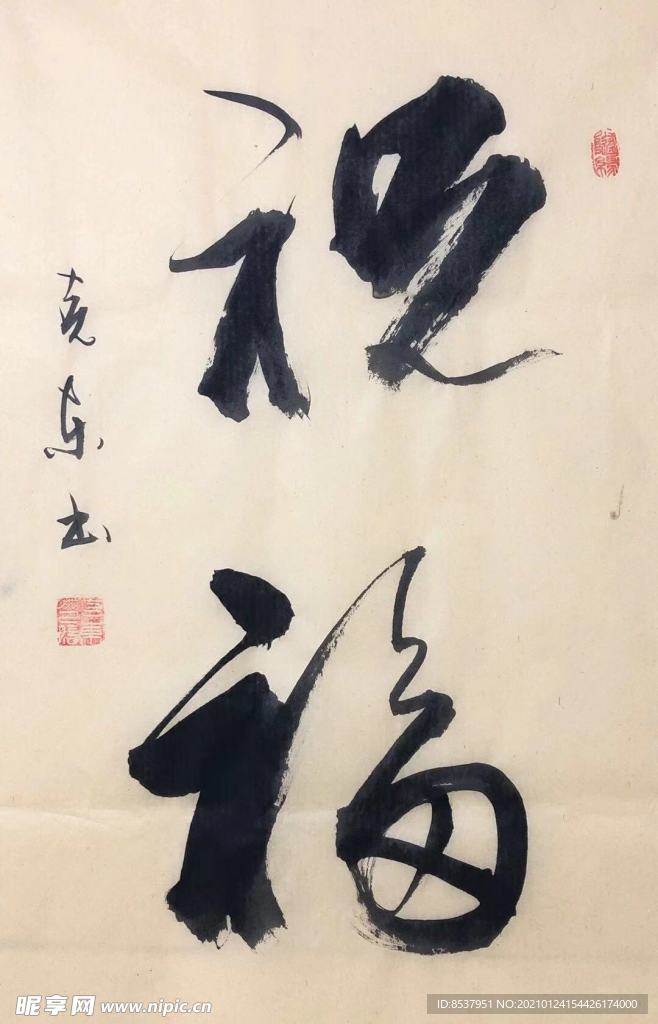 祝福
克东书
昵享网 www.nipic.cn
ID:8537951 NO:20210124154426174000